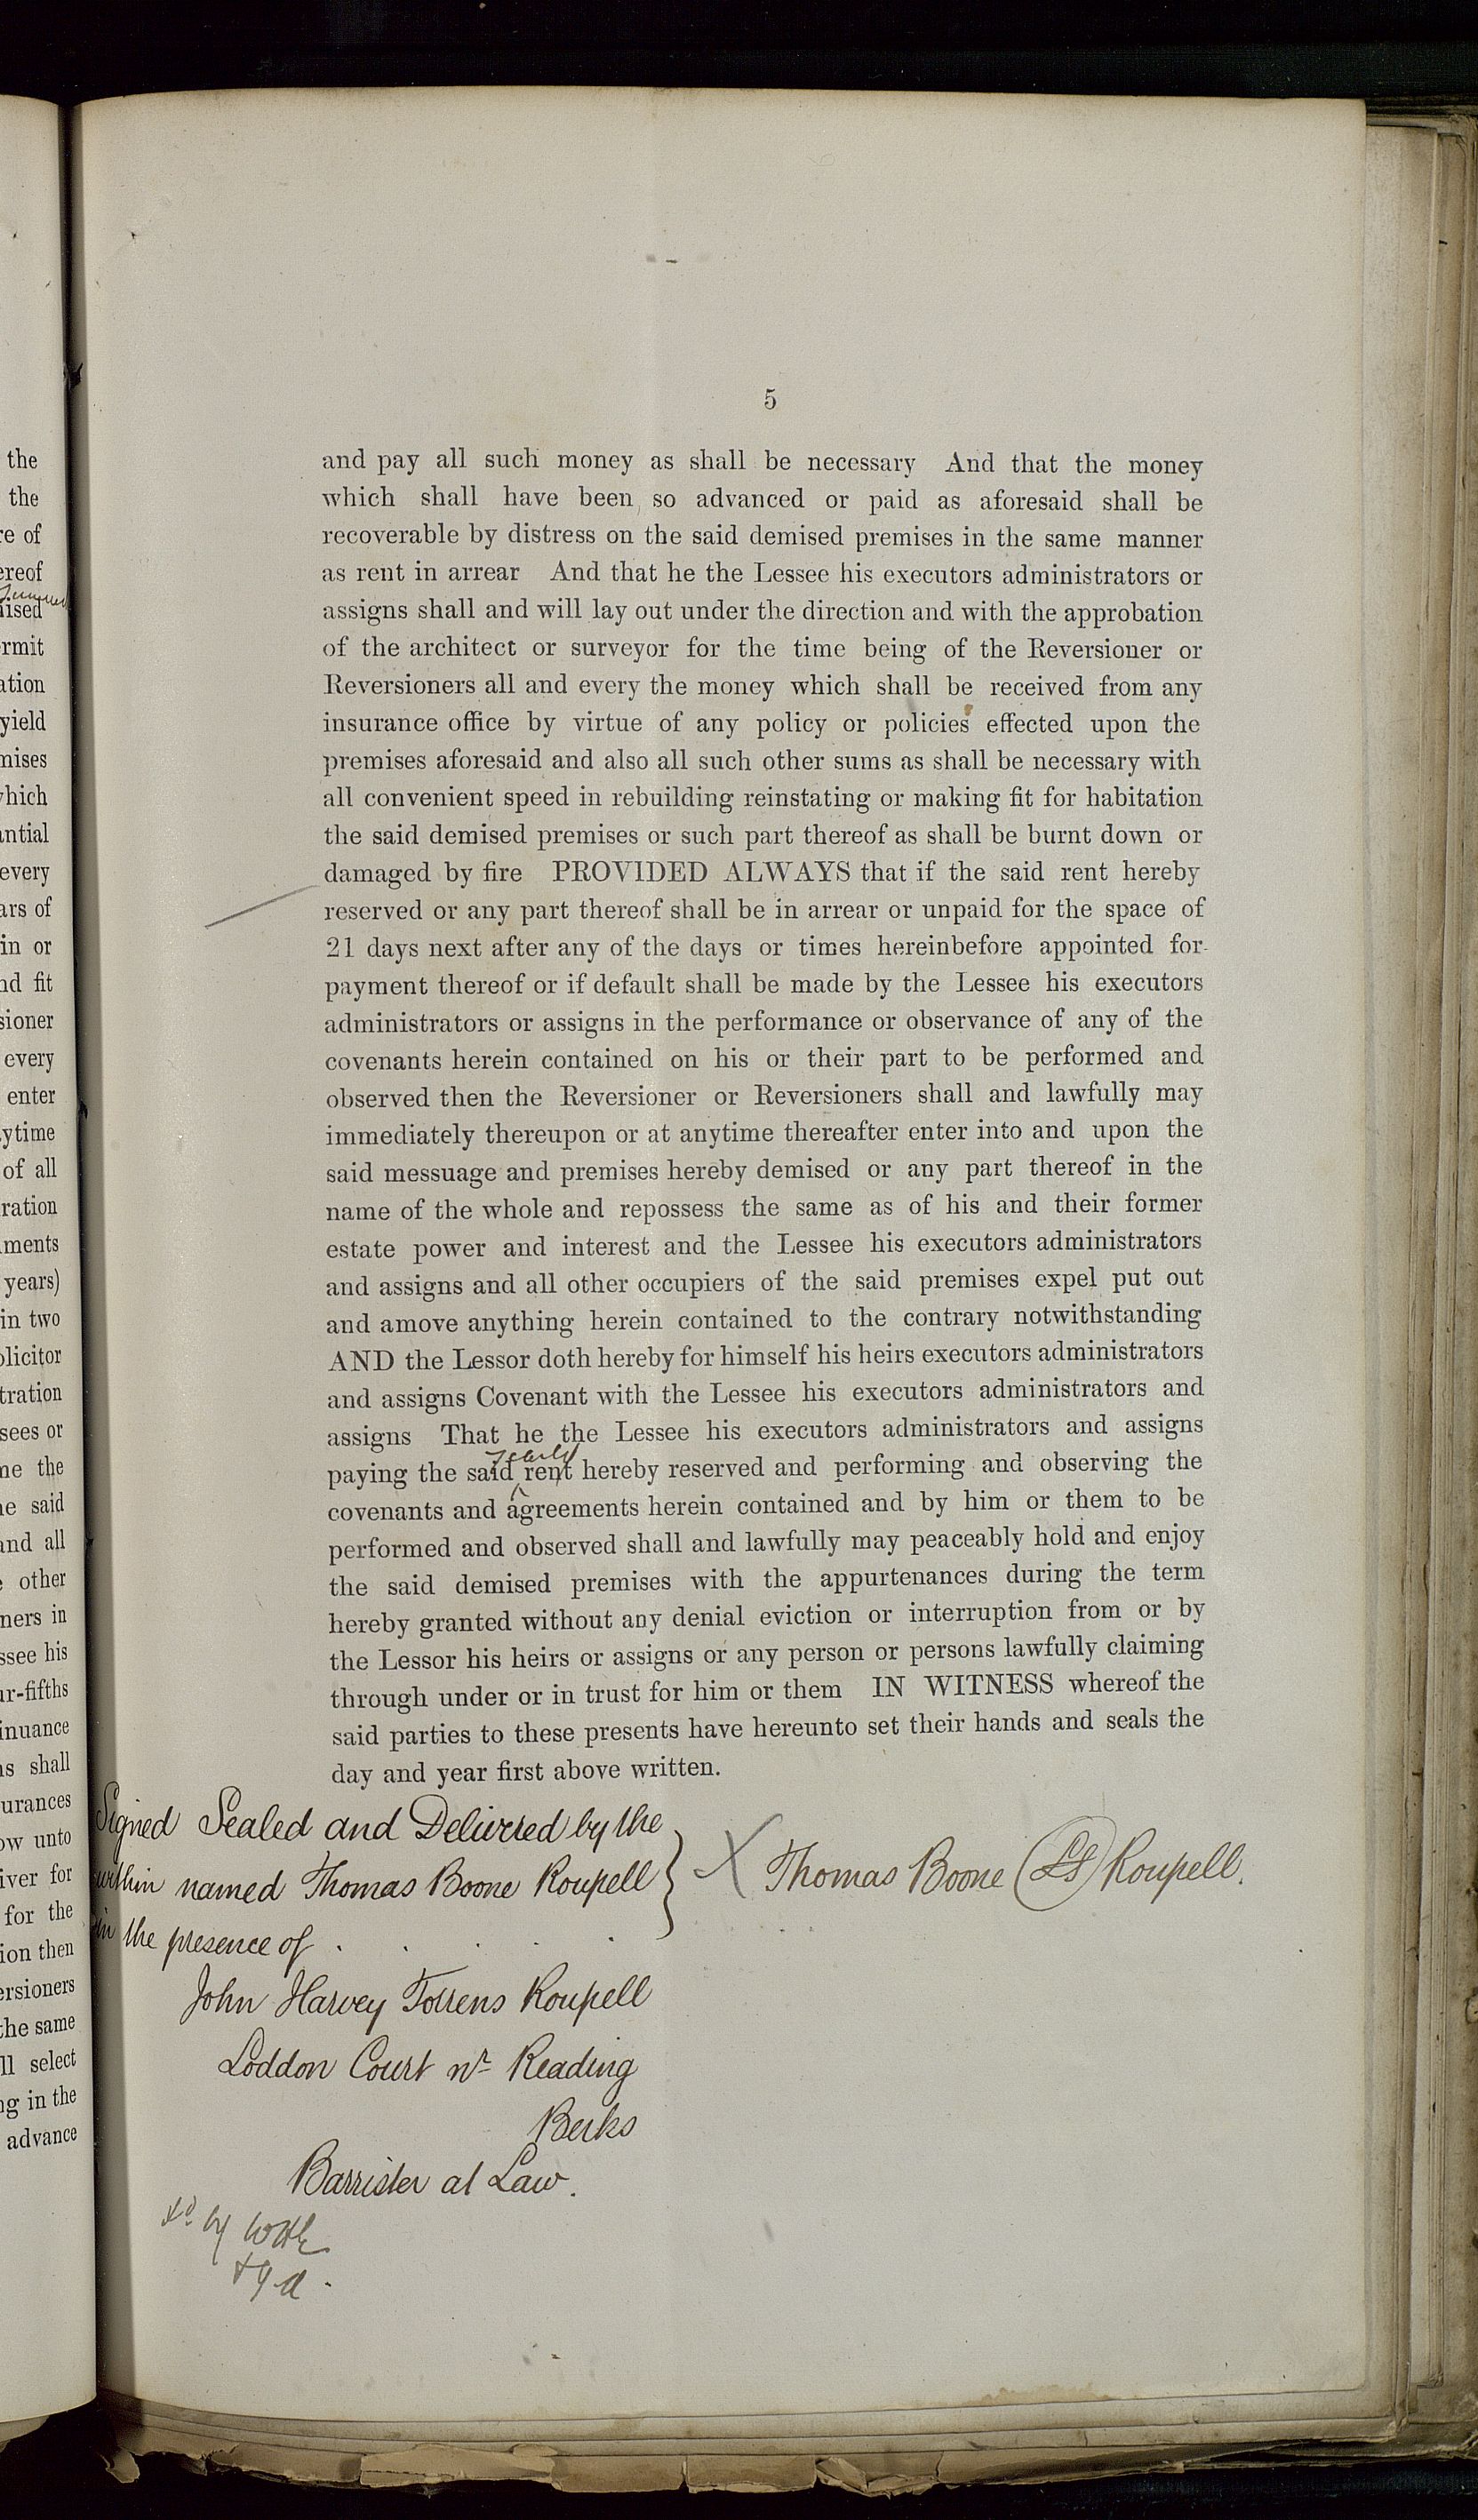 the
the
re of
ereof
ised
rmit
ation
yield
mises
which
antial
every
ars of
in or
nd fit
sioner
every
enter
ytime
of all
ration
ments
years)
in two
olicitor
tration
sees or
ne the
ne said
and all
other
ners in
ssee his
ur-fifths
inuance
ns shall
urances
ow unto
iver for
for the
ion then
ersioners
the same
ll select
ng in the
advance
5
and pay all such money as shall be necessary And that the money
which shall have been so advanced or paid as aforesaid shall be
recoverable by distress on the said demised premises in the same manner
as rent in arrear And that he the Lessee his executors administrators or
assigns shall and will lay out under the direction and with the approbation
of the architect or surveyor for the time being of the Reversioner or
Reversioners all and every the money which shall be received from any
insurance office by virtue of any policy or policies effected upon the
premises aforesaid and also all such other sums as shall be necessary with
all convenient speed in rebuilding reinstating or making fit for habitation
the said demised premises or such part thereof as shall be burnt down or
damaged by fire PROVIDED ALWAYS that if the said rent hereby
reserved or any part thereof shall be in arrear or unpaid for the space of
21 days next after any of the days or times hereinbefore appointed for
payment thereof or if default shall be made by the Lessee his executors
administrators or assigns in the performance or observance of any of the
covenants herein contained on his or their part to be performed and
observed then the Reversioner or Reversioners shall and lawfully may
immediately thereupon or at anytime thereafter enter into and upon the
said messuage and premises hereby demised or any part thereof in the
name of the whole and repossess the same as of his and their former
estate power and interest and the Lessee his executors administrators
and assigns and all other occupiers of the said premises expel put out
and amove anything herein contained to the contrary notwithstanding
AND the Lessor doth hereby for himself his heirs executors administrators
and assigns Covenant with the Lessee his executors administrators and
assigns That he the Lessee his executors administrators and assigns
yearly
paying the said rent hereby reserved and performing and observing the
covenants and agreements herein contained and by him or them to be
performed and observed shall and lawfully may peaceably hold and enjoy
the said demised premises with the appurtenances during the term
hereby granted without any denial eviction or interruption from or by
the Lessor his heirs or assigns or any person or persons lawfully claiming
through under or in trust for him or them IN WITNESS whereof the
said parties to these presents have hereunto set their hands and seals the
day and year first above written.
Signed Sealed and Delivered by the
within named Thomas Boone Roupell
in the presence of
Thomas Boone (LS) Roupell.
John Harvey Torrens Roupell
Loddon Court nr Reading
Berks
Barrister at Law.